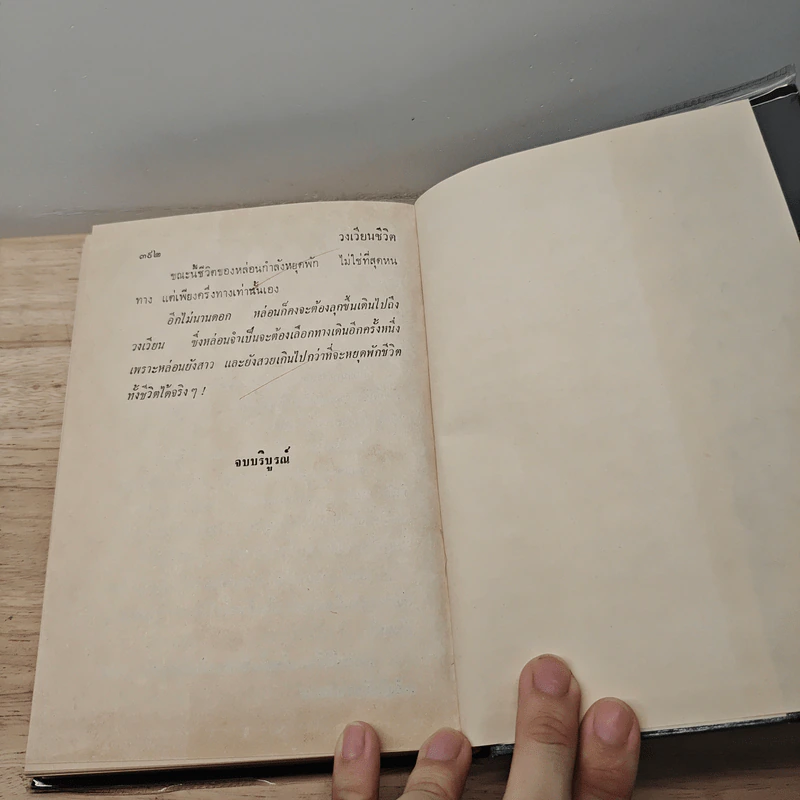 ๓๙๒
วงเวียนชีวิต
ขณะนี้ชีวิตของหล่อนกำลังหยุดพัก ไม่ใช่ที่สุดหน
ทาง แต่เพียงครึ่งทางเท่านั้นเอง
อีกไม่นานดอก หล่อนก็คงจะต้องลุกขึ้นเดินไปถึง
วงเวียน ซึ่งหล่อนจำเป็นจะต้องเลือกทางเดินอีกครั้งหนึ่ง
เพราะหล่อนยังสาว และยังสวยเกินไปกว่าที่จะหยุดพักชีวิต
ทั้งชีวิตได้จริงๆ !
จบบริบูรณ์